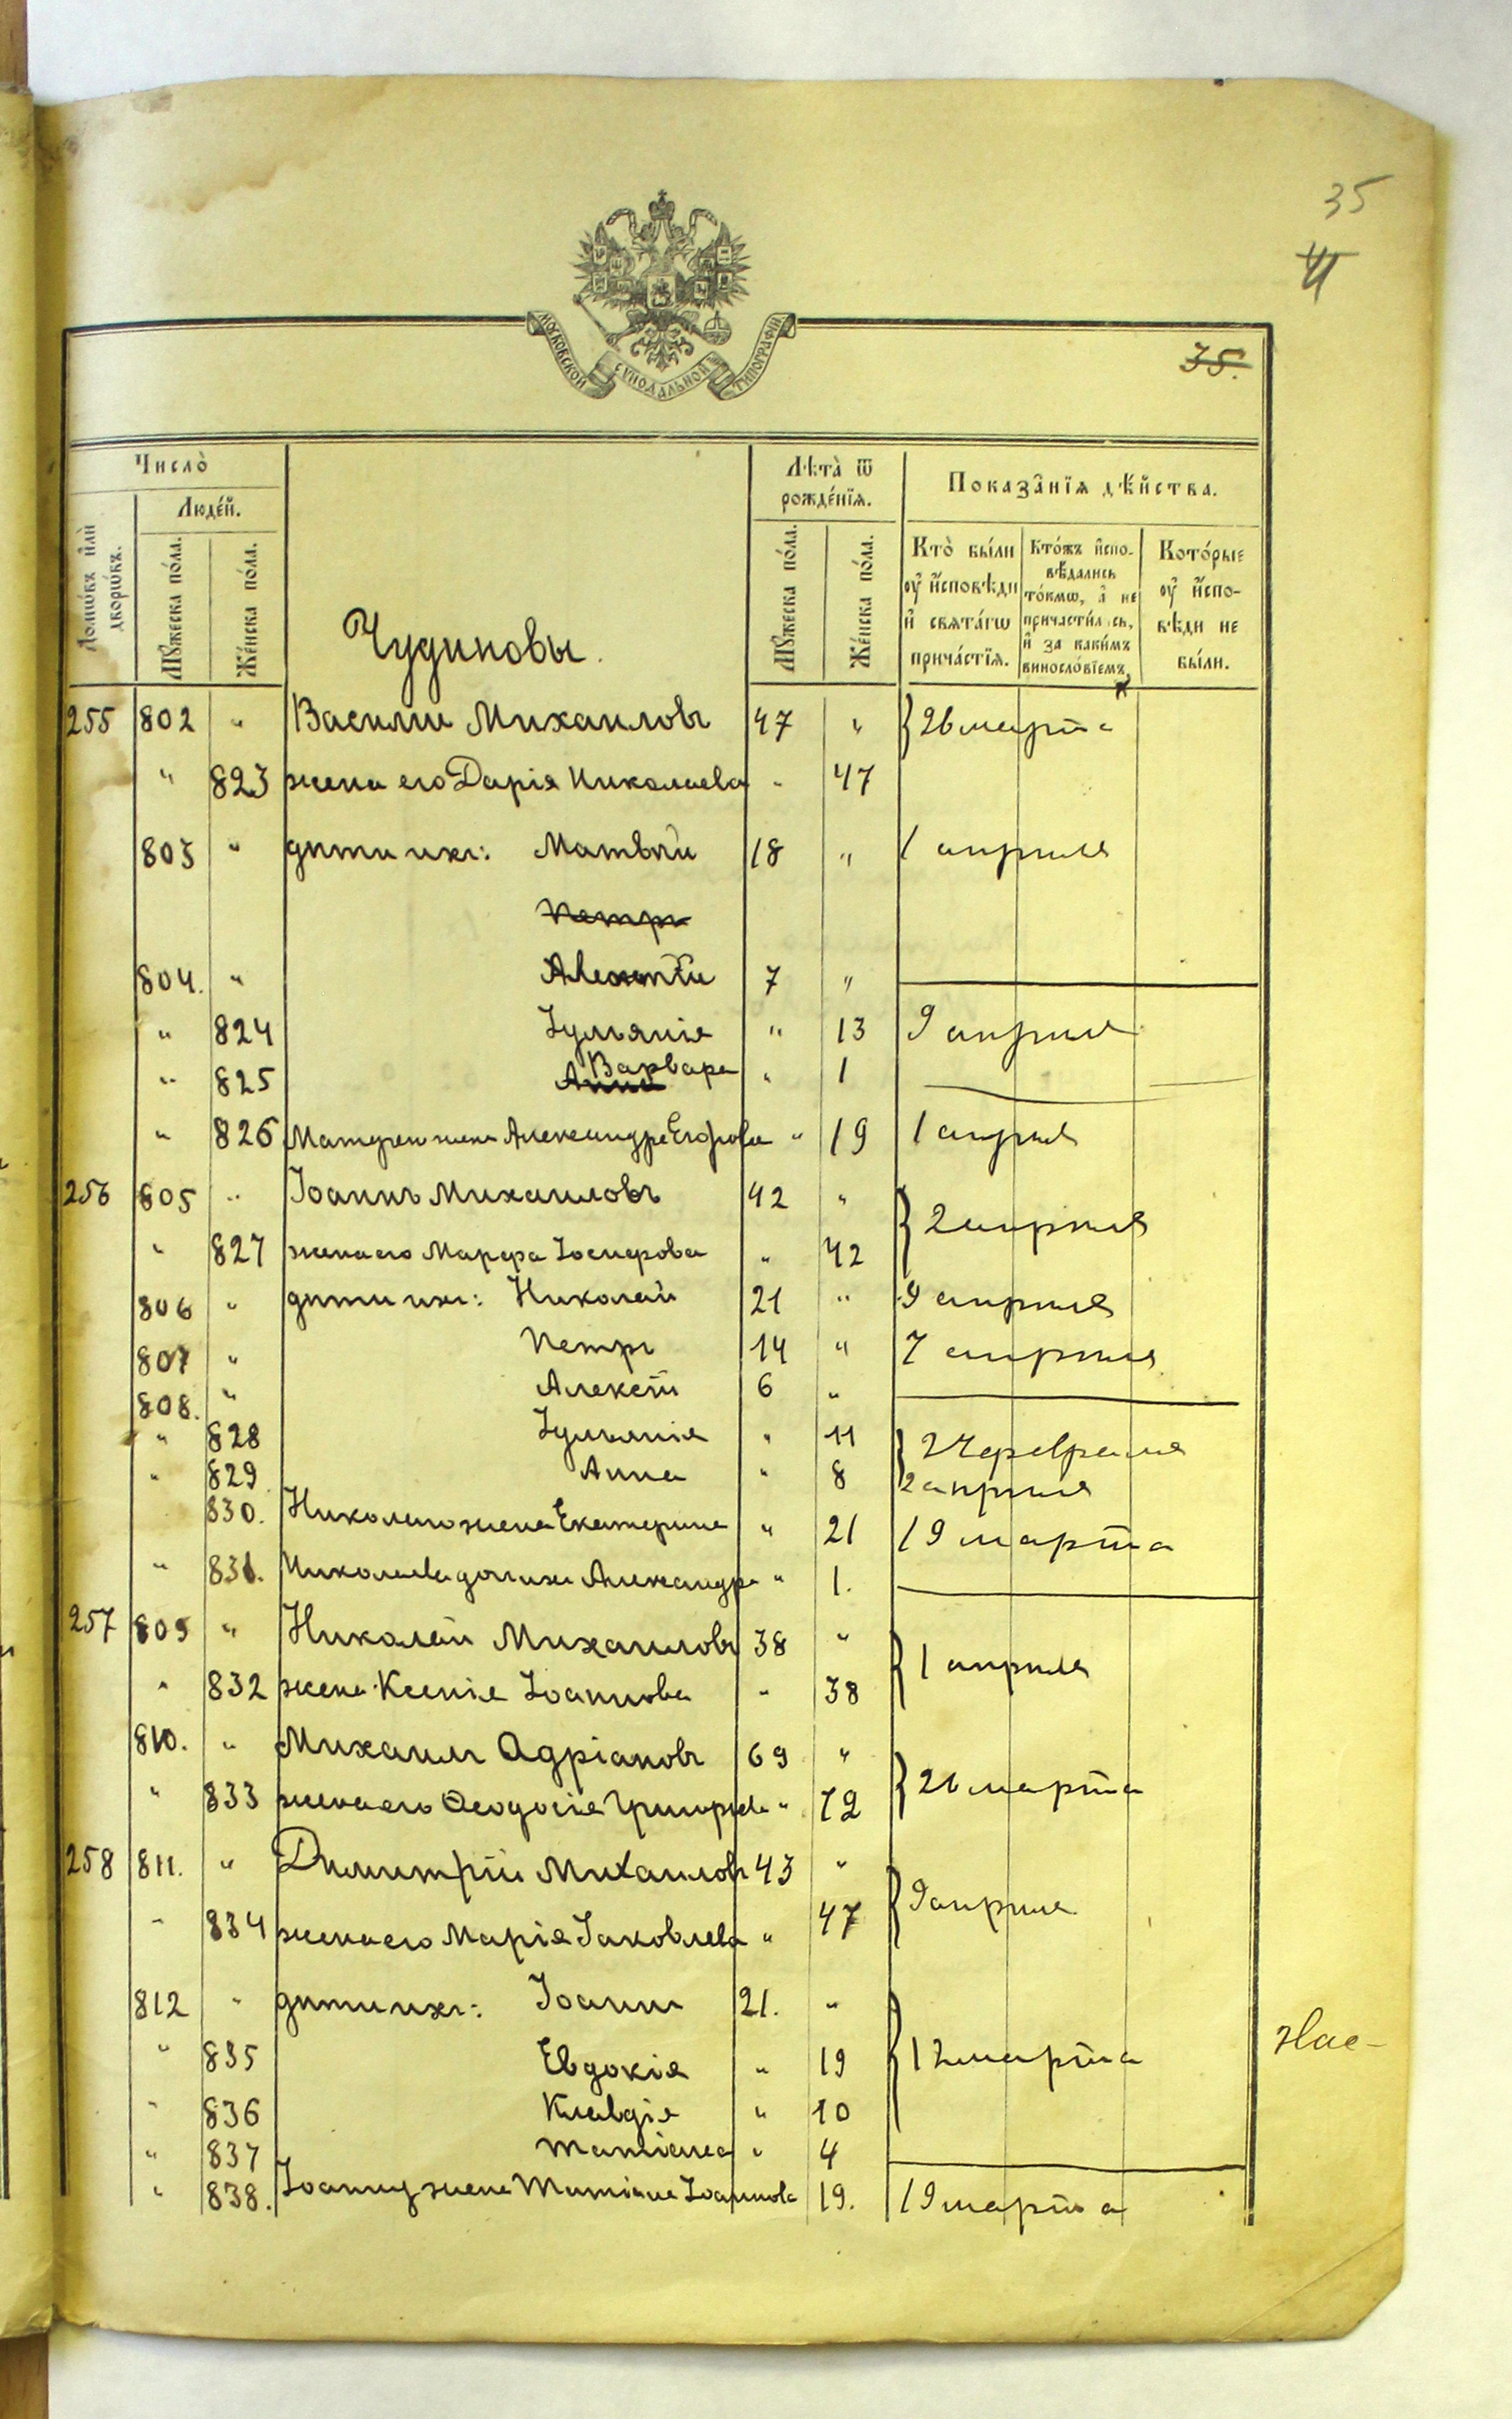 35
41
МОСКОВСКОЙ СѴНОДАЛЬНОЙ ТИПОГРАФІИ
35.
Число̀
Лѣта̀ ѿ рожде́нїѧ.
Показа̑нїѧ дѣ́йства.
Людей.
Домѡ́въ и҆лѝ дворѡ́въ.
Мꙋ́жеска по́ла.
Же́нска по́ла.
Мꙋ́жеска по́ла.
Же́нска по́ла.
Кто̀ бы́ли оу҆ и҆́сповѣди и҆ свѧта́гѡ прича́стїѧ.
Кто́жъ и҆спо-вѣдались то́кмѡ, а҆ не причасти́лись, и҆ за каки́мъ винослόвїемъ.
Кото́рые оу҆ и҆́спо-вѣди не бы́ли.
Чудиновы.
255 802 " Василiй Михаиловъ 47 " 26 марта
" 823 жена его Дарія Николаева " 47
803 " дѣти ихъ: Матвѣй 18 " 1 апрѣля
Петръ
804. " 7 "
" 824 Іуліанія " 13 9 апрѣля
" 825 Варвара " 1
Анна
" 826 Матѳея жена Александра Егорова " 19 1 апрѣля
256 805 " Іоаннъ Михаиловъ 42 " 2 апрѣля
" 827 жена его Марѳа Іосифова " 42
806 " дѣти ихъ: Николай 21 " 9 апрѣля
807 " Петръ 14 " 7 апрѣля
808. " Алексѣй 6 "
" 828 Іуліанія " 11 24 февраля
" 829 Анна " 8 2 апрѣля
830. Николаго жена Екатерина " 21 19 марта
" 831. Николаева дочь их Александра " 1.
257 809 " Николай Михаиловъ 38 " 1 апрѣля
" 832 жена Ксенія Іоаннова " 38
810. " Михаилъ Адріановъ 69 " 26 марта
" 833 жена его Ѳеодосія Григорьева " 72
258 811. " Димитрій Михаиловъ 43 " 9 апрѣля
" 834 жена его Марія Іаковлева " 47
812 " дѣти ихъ: Іоаннъ 21. " 12 марта
" 835 Евдокія " 19
" 836 Клавдія " 10
" 837 Татіана " 4
" 838. Іоанну жена Татіана Іоаннова 19. 19 марта
Нас-